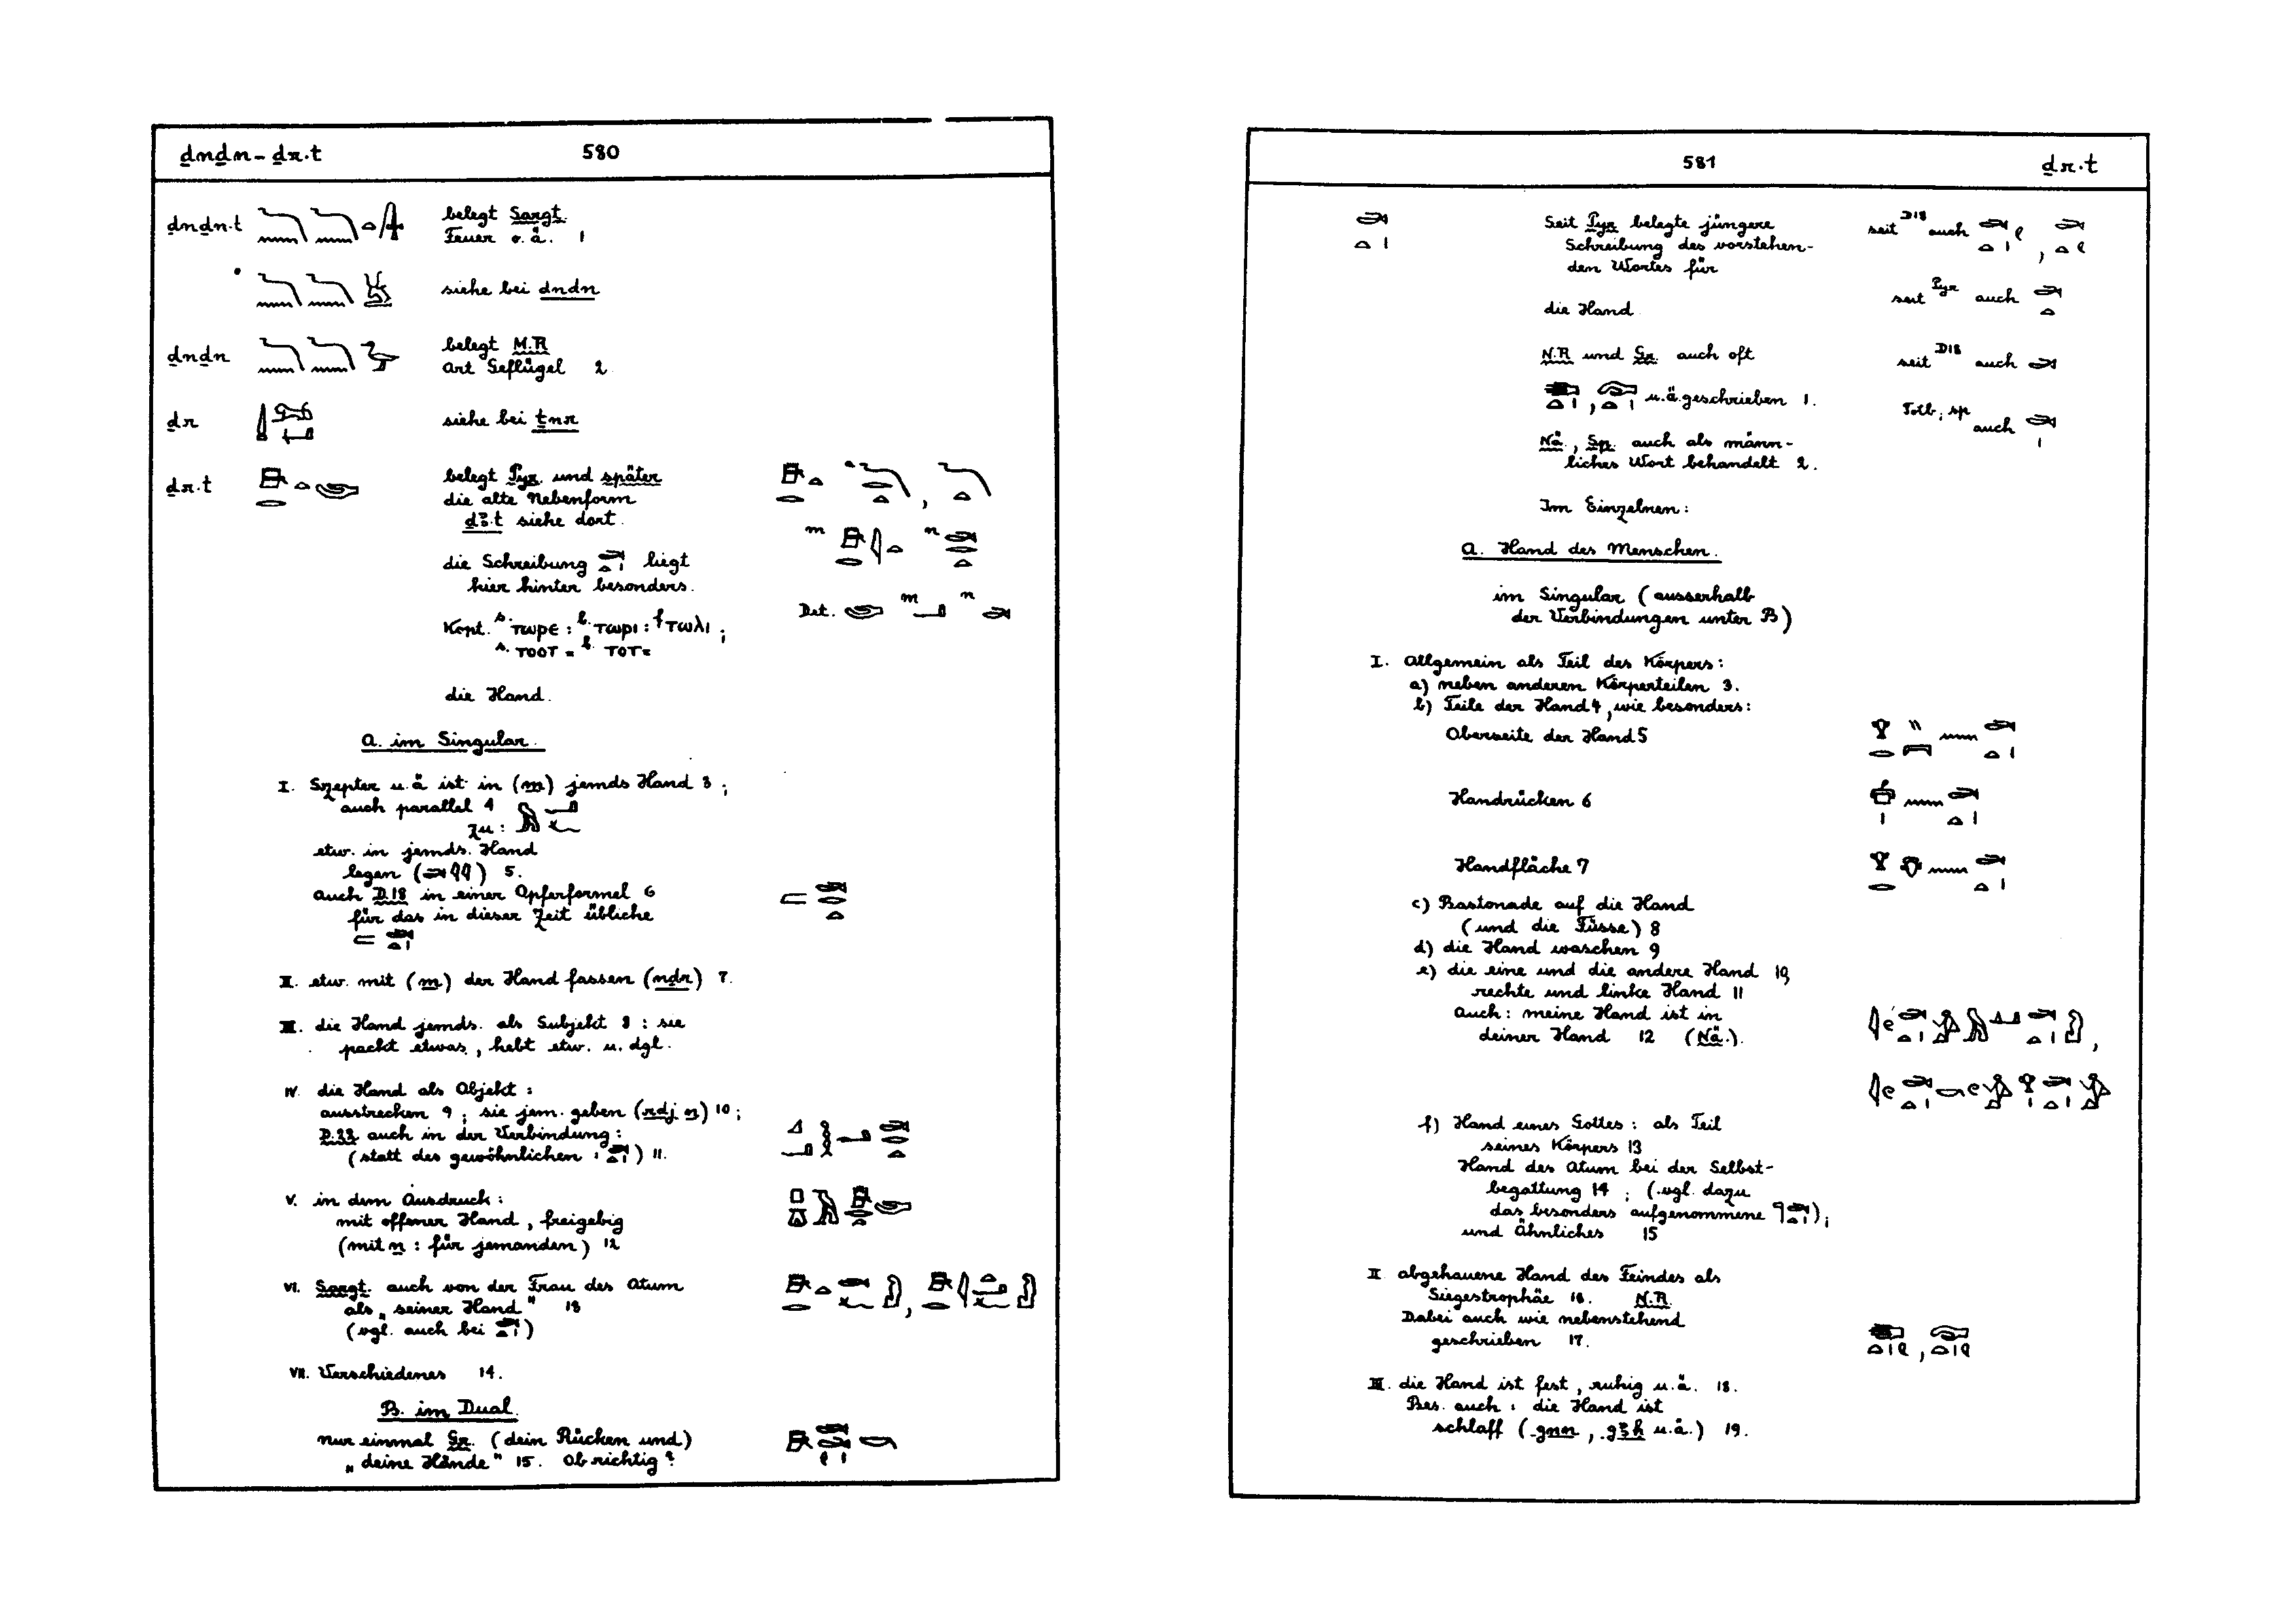 ḏnḏn – ḏr.t 580
ḏnḏn.t belegt Sargt.
Feuer o.ä. 1
siehe bei ḏnḏn
ḏnḏn belegt M.R
Art Geflügel 2
ḏr siehe bei ṯnr
ḏr.t belegt Pyr. und später
die alte Nebenform
ḏꜣ.t siehe dort.
die Schreibung liegt
hier hinter besonders.
m n
Det. m n
Kopt. s. ⲧⲱⲣⲉ : b. ⲧⲱⲣⲓ : f ⲧⲱⲗⲓ ;
s. ⲧⲟⲟⲧ = b. ⲧⲟⲧ=
die Hand.
A. im Singular.
I. Szepter u.ä ist in (m) jemds Hand 3 ;
auch parallel 4
zu :
etw. in jemds. Hand
legen ( ) 5.
auch D.18 in einer Opferformel 6
für das in dieser Zeit übliche
II. etw. mit (m) der Hand fassen (nḏr) 7.
III. die Hand jemds. als Subjekt 8 : sie
packt etwas, hebt etw. u. dgl.
IV. die Hand als Objekt :
ausstrecken 9 ; sie jem. geben (rdj n) 10 ;
D.22 auch in der Verbindung :
(statt des gewöhnlichen : ) 11.
V. in dem Ausdruck :
mit offener Hand, freigebig
(mit n : für jemanden) 12
VI. Sargt. auch von der Frau des Atum
als „seiner Hand" 13
(vgl. auch bei )
VII. Verschiedenes 14.
B. im Dual.
nur einmal Gr. (dein Rücken und)
„deine Hände" 15. Ob richtig?
581 ḏr.t
Seit Pyr belegte jüngere
Schreibung des vorstehen-
den Wortes für
die Hand
N.R und Gr. auch oft
u.ä. geschrieben 1.
Nä., Sp. auch als männ-
liches Wort behandelt 2.
seit D18 auch ,
seit Pyr auch
seit D18 auch
Totb, sp auch
Im Einzelnen :
A. Hand des Menschen.
im Singular (ausserhalb
der Verbindungen unter B)
I. Allgemein als Teil des Körpers :
a) neben anderen Körperteilen 3.
b) Teile der Hand 4, wie besonders :
Oberseite der Hand 5
Handrücken 6
Handfläche 7
c) Bastonade auf die Hand
(und die Füsse) 8
d) die Hand waschen 9
e) die eine und die andere Hand 10,
rechte und linke Hand 11
Auch : meine Hand ist in
deiner Hand 12 (Nä.).
f) Hand eines Gottes : als Teil
seines Körpers 13
Hand des Atum bei der Selbst-
begattung 14 ; (vgl. dazu
das besonders aufgenommene ) ;
und Ähnliches 15
II abgehauene Hand des Feindes als
Siegestrophäe 16. N.R.
Dabei auch wie nebenstehend
geschrieben 17.
III. die Hand ist fest, ruhig u.ä. 18.
Bes. auch : die Hand ist
schlaff (gnn, gꜣḥ u.ä.) 19.